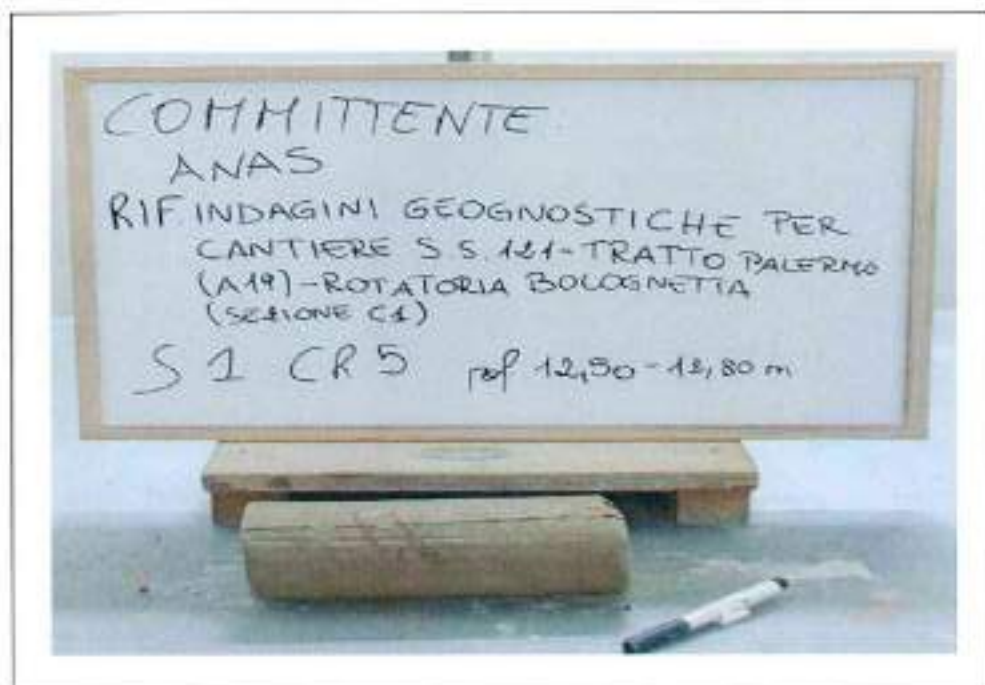 COMMITTENTE
ANAS
RIF INDAGINI GEOGNOSTICHE PER
CANTIERE S.S. 121-TRATTO PALERMO
(A19)-ROTATORIA BOLOGNETTA
(SEZIONE C1)
S1 CR5 prof 12,50-12,80 m